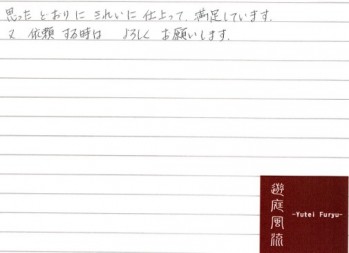 思ったとおりに きれいに 仕上って、満足しています。
又 依頼する時は よろしく お願いします。
遊庭風流
-Yutei Furyu-